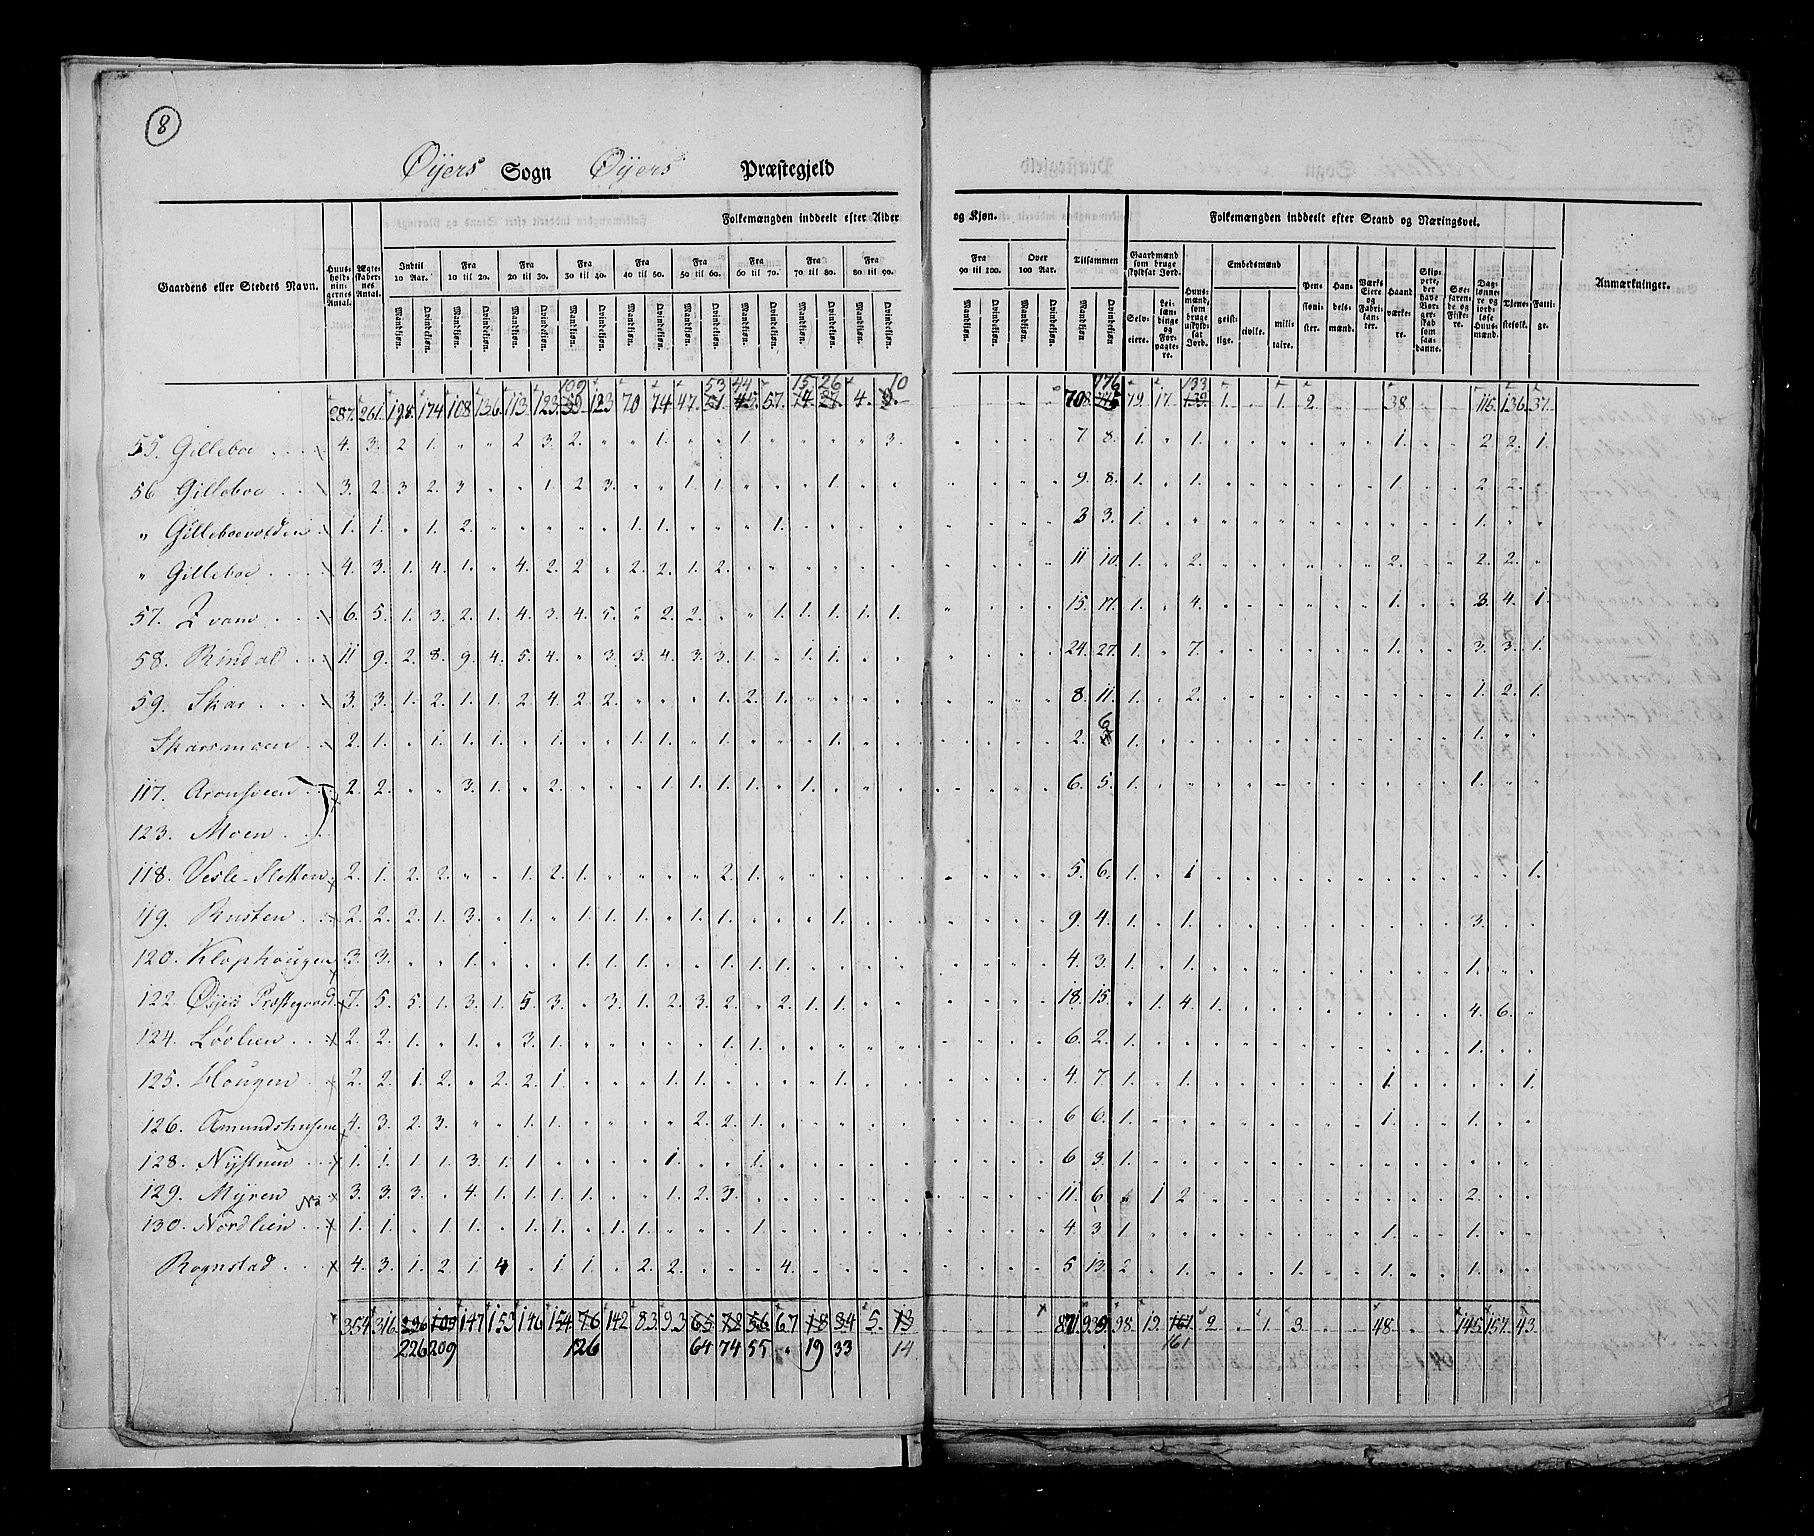 8
Öÿers Sogn Öÿers Præstegjeld
Folkemængden inddeelt efter Alder og Kjøn. Folkemængden inddeelt efter Stand og Næringsvei.
Gaardens eller Stedets Navn. Huusholdningernes Antal. Ægteskabernes Antal. Indtil 10 Aar. Fra 10 til 20. Fra 20 til 30. Fra 30 til 40. Fra 40 til 50. Fra 50 til 60. Fra 60 til 70. Fra 70 til 80. Fra 80 til 90. Fra 90 til 100. Over 100 Aar. Tilsammen Gaardmænd som bruge skyldsat Jord. Huusmænd, som bruge uskyldsat Jord. Embedsmænd Pensionister. Handelsmænd. Værks Eiere og Fabrikanter. Haandværkere. Skippere, der have Borgerskab som saadanne. Søefarende og Fiskere. Daglønnere og jordløse Huusmænd. Tjenestefolk. Fattige. Anmærkninger.
Mandkjøn. Qvindekjøn. Mandkjøn. Qvindekjøn. Mandkjøn. Qvindekjøn. Mandkjøn. Qvindekjøn. Mandkjøn. Qvindekjøn. Mandkjøn. Qvindekjøn. Mandkjøn. Qvindekjøn. Mandkjøn. Qvindekjøn. Mandkjøn. Qvindekjøn. Mandkjøn. Qvindekjøn. Mandkjøn. Qvindekjøn. Mandkjøn. Qvindekjøn. Selveiere. Leilændinge og Forpagtere. geistlige. civile. militaire.
109 53 44 15 26 10 776 133
287. 261. 198. 174 108 136. 113. 123. 123 70 74 47. 51 45 57. 14 27 4. 708 79. 17. 139 1. 1. 2. 38. 116. 136. 37.
55. Gilleboe 4. 3. 2 1. " " 2 3. 2. " " 1. " " 1 " " " " 3. 7 8. 1. " 1. 1. 2 2. 1.
56 Gilleboe 3. 2. 3 2. 3 " " 1. 2 3. " " 1 1. " " " 1. 9. 8. 1. 1. 1. 2. 2.
" Gilleboevolden 1. 1. " 1. 2. " " " " " 1. 1. " " " 1. 3 3. 1. 1.
" Gilleboe 4. 3. 1. 4. 1. " 4. 2. 2 " 2. 2. 1. 2. 11 10. 1. 2. 2. 2. 2.
57. Zvand 6. 5. 1. 3. 2. 1. 4. 3. 4. 5. " 2. 2. " " 1. 1. 1. 1. 1. 15. 17. 1. 4. 1. 3. 4. 1.
58. Rindal 11 9. 2. 8. 9. 4. 5. 4. " 3. 3. 4. 3. 3. 1. " 1. 1. 24. 27. 1. 7. 1. 3. 3. 1.
59. Skar 3. 3. 1. 2. 1. 1. 2 4. 2. 2. " " " 1. 2. 1. 8. 11. 1. 2. 1. 2. 1.
Skarsmoen 2. 1. " 1. 1. 1. " 1. " " 1. 1. " 1. " " " 1. 2. 6 1. 1.
117. Aronsveen 2. 2. " " 3. 1. " 2. " " " 1. 1. 1. 1. " 1. 6. 5. 1. 1.
123. Moen
118. Vesle-Sletten 2. 1. 2. 2. " " 1. 2. 1. " " " " 2. 1. 5. 6. 1. 1 1.
119. Rusten 2. 2. 2. 1. 3. " 1. " 1. 1. 1. " 1. 1. " " " 1. 9. 4. 1. 1. 3.
120. Klophougen 3. 3. " " 1. " " " 1. 1. 1. " " 1. 1. 1. 4. 3. 1. 1. 1.
122. Öÿers Præstegaard 7. 5. 5. 1. 3. 1. 5. 3. " 3. 1. 2. 3. 2. " 2. 1. 1. 18. 15. " 1. 4. 1. 4. 6.
124. Lövlien 2. 2. 1. " 1. " 3. 1. " " " " " 1. 1. 6. 2. 1. 1.
125. Hougen 2. 2. 1. 2. " 2. 2. 1. " " " 1. 1. " " " " 1. 4. 7. 1. 1. 1. 1.
126. Amundshusene 4. 3. 2. 3. " " 1. 1. " " " " 2. 2. 1. 6 6. 1. 1. 1.
128. Nÿstuen 1. 1. 1. 1. 3. 1. 1 " " " " 1. " " 1. 6 3. 1.
129. Mÿren 3. 3. 3. " 4. 1. 1. 1. 1. " " 1. 2. 3. 11. 6. 1 2. 2.
130. Nordlien 1. 1. " 1. 1. " 1. 1. " 1. 1. " " " 1. 4. 3 1. 1. 1.
Rognstad 4. 3. 1. 2. 1 4 " 1. 1. " 2. 2. " " " 4. 5 13. 2 1. 1. 1. 1.
354 316. 226 109 147 153 146 154 76 142 83. 93 65 72 56 67 18 34 5. 13 871. 939. 98. 19. 167 2 1. 3. 48. 145. 157. 43.
226 209 126 64 74 55 " 19 33 14 161